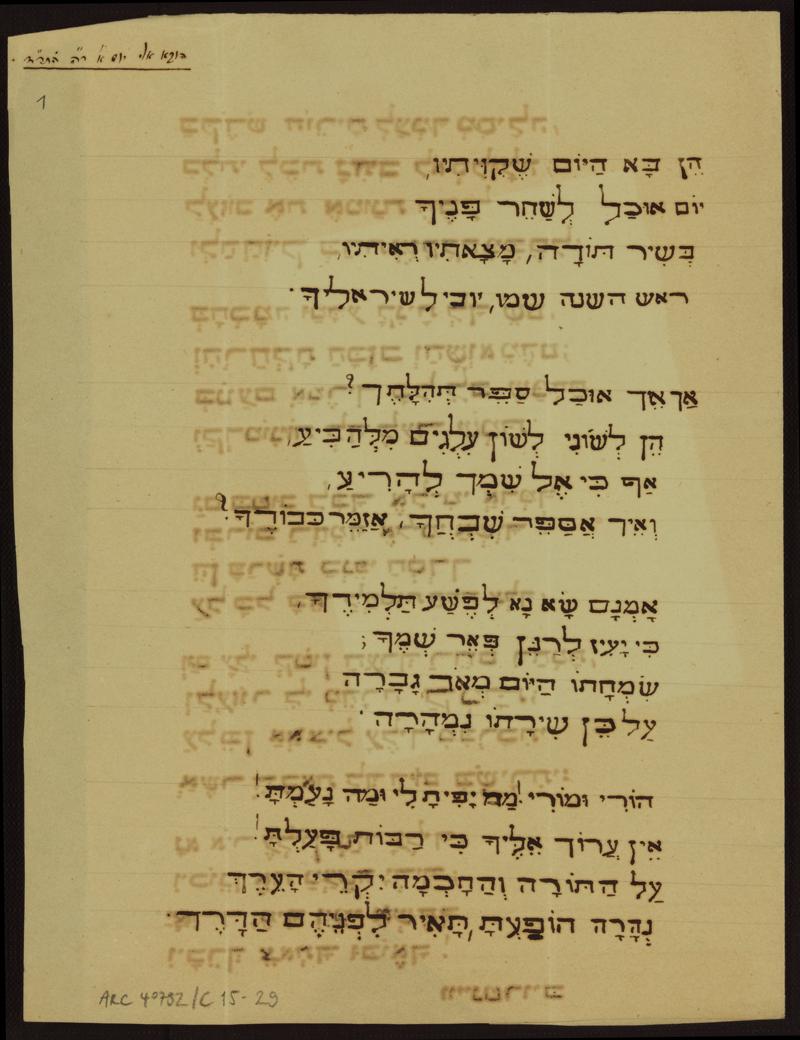 הוקא אלי יום א' ר"ה
1
הֵן בָּא הַיּוֹם שֶׁקִוִּיתִיו,
יוֹם אוּכַל לְשַׁחֵר פָּנֶיךָ
בְּשִׁיר תּוֹדָה, מְצָאתִיו רְאִיתִיו,
ראש השנה שמו, יוביל שיר אליךָ.
אַךְ אֵךְ אוּכַל סַפֵּר תְּהִלָּתֶךָ?
הֵן לְשׁוֹנִי לְשׁוֹן עִלְּגִים מִלְּהַבִּיעַ,
אַף כִּי אֶל שִׁמְךָ לְהָרִיעַ,
וְאֵיךְ אֲסַפֵּר שִׁבְחֲךָ, אֲזַמֵּר כְּבוֹדֶךָ?
אָמְנָם שָׂא נָא לְפֶשַׁע תַּלְמִידֶךָ,
כִּי יָעִיז לְרַנֵּן פְּאֵר שְׁמֶךָ;
שִׂמְחָתוֹ הַיּוֹם מְאֹד גָּבָרָה
עַל כֵּן שִׁירָתוֹ נִמְהָרָה.
הוֹרִי וּמוֹרִי! מַה יָּפִיתָ לִי וּמַה נָּעַמְתָּ!
אֵין עֲרוֹךְ אֵלֶיךָ כִּי רַבּוֹת פָּעַלְתָּ!
עַל הַתּוֹרָה וְהַחָכְמָה יִקְרֵי הָעֵרֶךְ
נְהָרָה הוֹפַעְתָּ, תָּאִיר לִפְנֵיהֶם הַדָּרֶךְ.
ARC 4°792/C 15-29